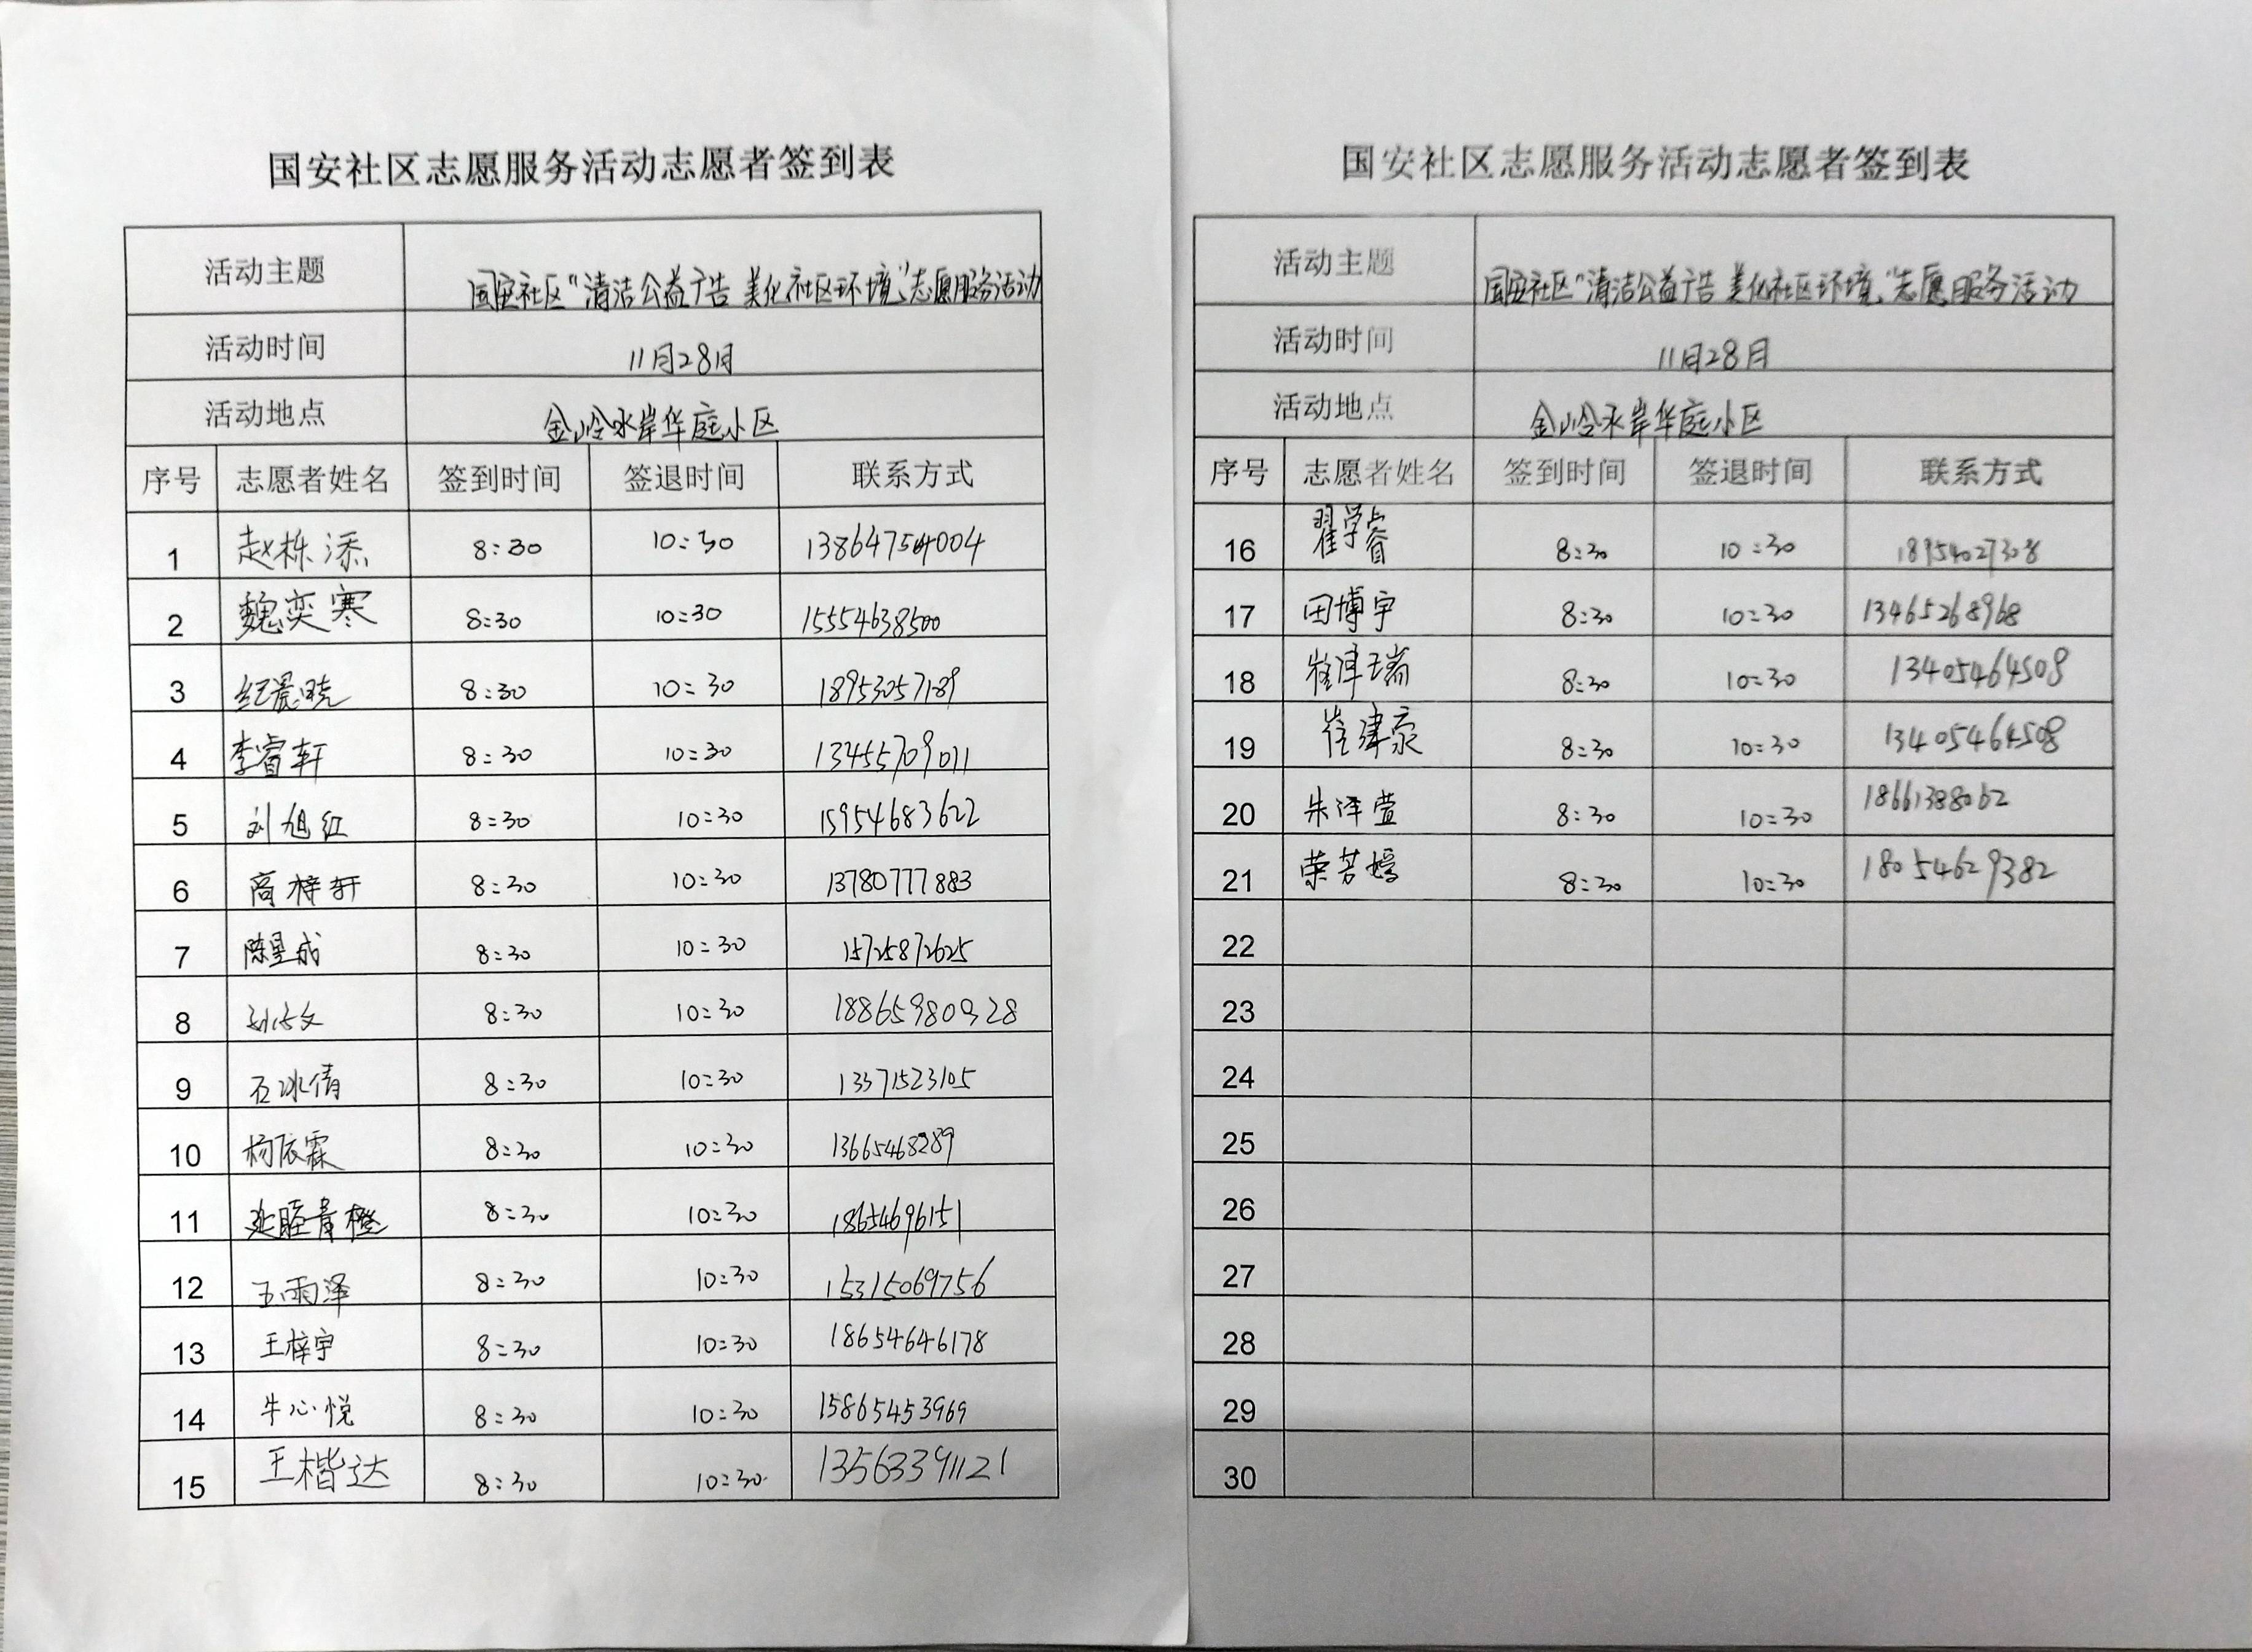 国安社区志愿服务活动志愿者签到表
活动主题 国安社区“清洁公益广告 美化社区环境”志愿服务活动
活动时间 11月28日
活动地点 金岭水岸华庭小区
序号 志愿者姓名 签到时间 签退时间 联系方式
1 赵栎添 8:30 10:30 13864754004
2 魏奕寒 8:30 10:30 15554638500
3 纪晨晓 8:30 10:30 18953057189
4 李睿轩 8:30 10:30 13455709011
5 刘旭红 8:30 10:30 15954683622
6 高梓轩 8:30 10:30 13780777883
7 陈昱成 8:30 10:30 15725872625
8 8:30 10:30 18865980928
9 石冰倩 8:30 10:30 13371523105
10 杨依霖 8:30 10:30 13665468289
11 8:30 10:30 18654696151
12 王雨泽 8:30 10:30 15315069756
13 王梓宇 8:30 10:30 18654646178
14 牛心悦 8:30 10:30 15865453969
15 王楷达 8:30 10:30 13563391121
国安社区志愿服务活动志愿者签到表
活动主题 国安社区“清洁公益广告 美化社区环境”志愿服务活动
活动时间 11月28日
活动地点 金岭水岸华庭小区
序号 志愿者姓名 签到时间 签退时间 联系方式
16 翟学睿 8:30 10:30 18954027308
17 田博宇 8:30 10:30 13465268968
18 崔津瑞 8:30 10:30 13405464508
19 崔津豪 8:30 10:30 13405464508
20 朱泽萱 8:30 10:30 18661388062
21 荣芳嫣 8:30 10:30 18054629382
22
23
24
25
26
27
28
29
30